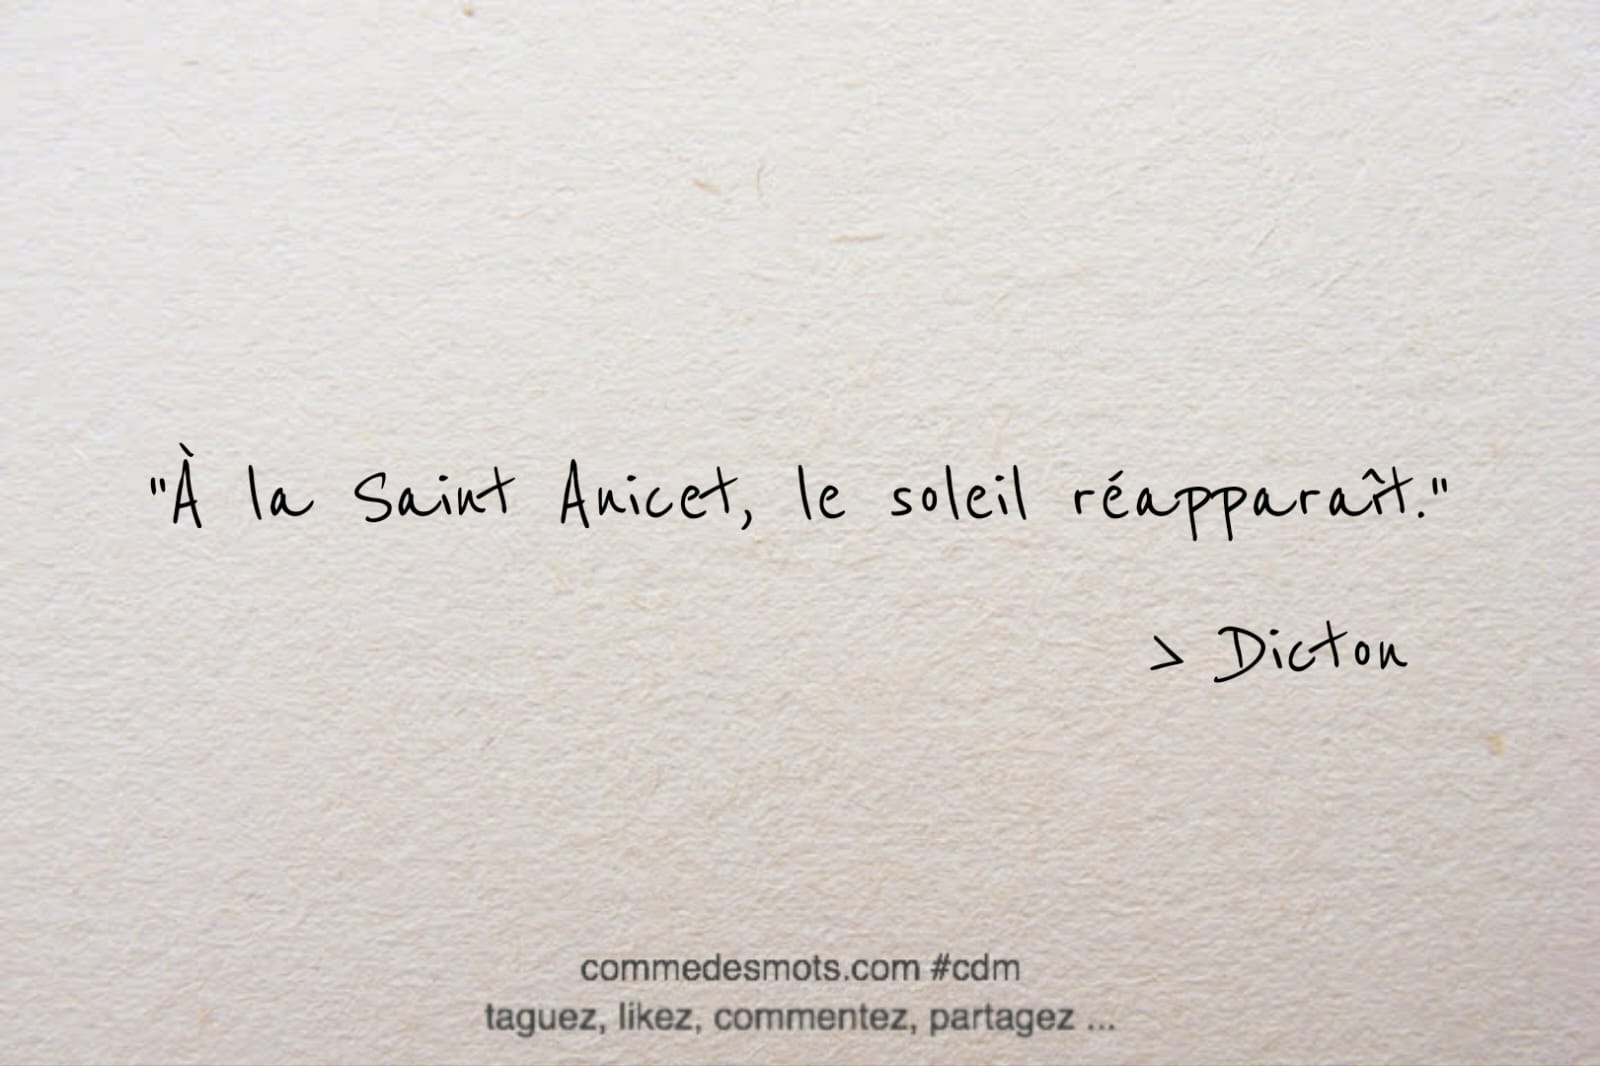 "À la Saint Anicet, le soleil réapparaît."
> Dicton
commedesmots.com #cdm
taguez, likez, commentez, partagez ...